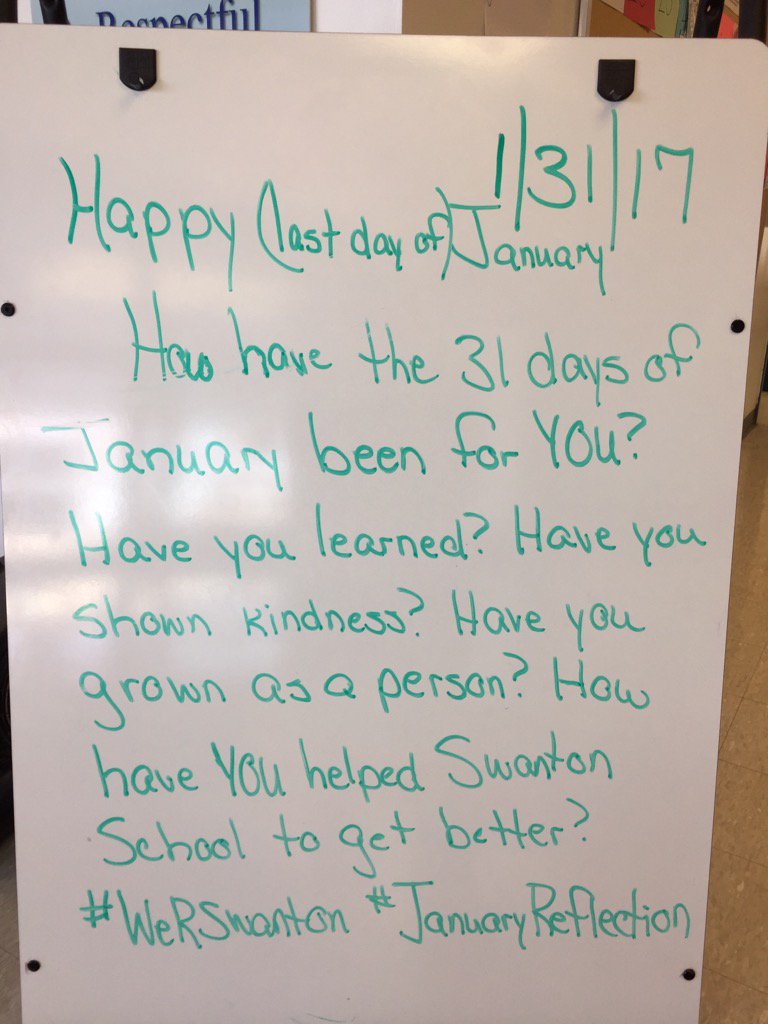 Respectful
1/31/17
Happy (last day of) January
How have the 31 days of
January been for YOU?
Have you learned? Have you
shown kindness? Have you
grown as a person? How
have YOU helped Swanton
School to get better?
#WeRSwanton #JanuaryReflection